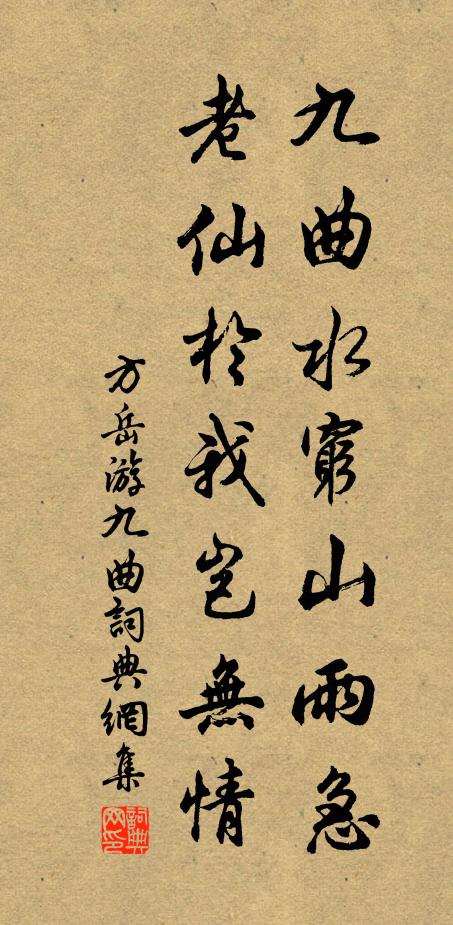 九曲水窮山雨急
老仙於我豈無情
方岳游九曲詞典網集
詞典
网印